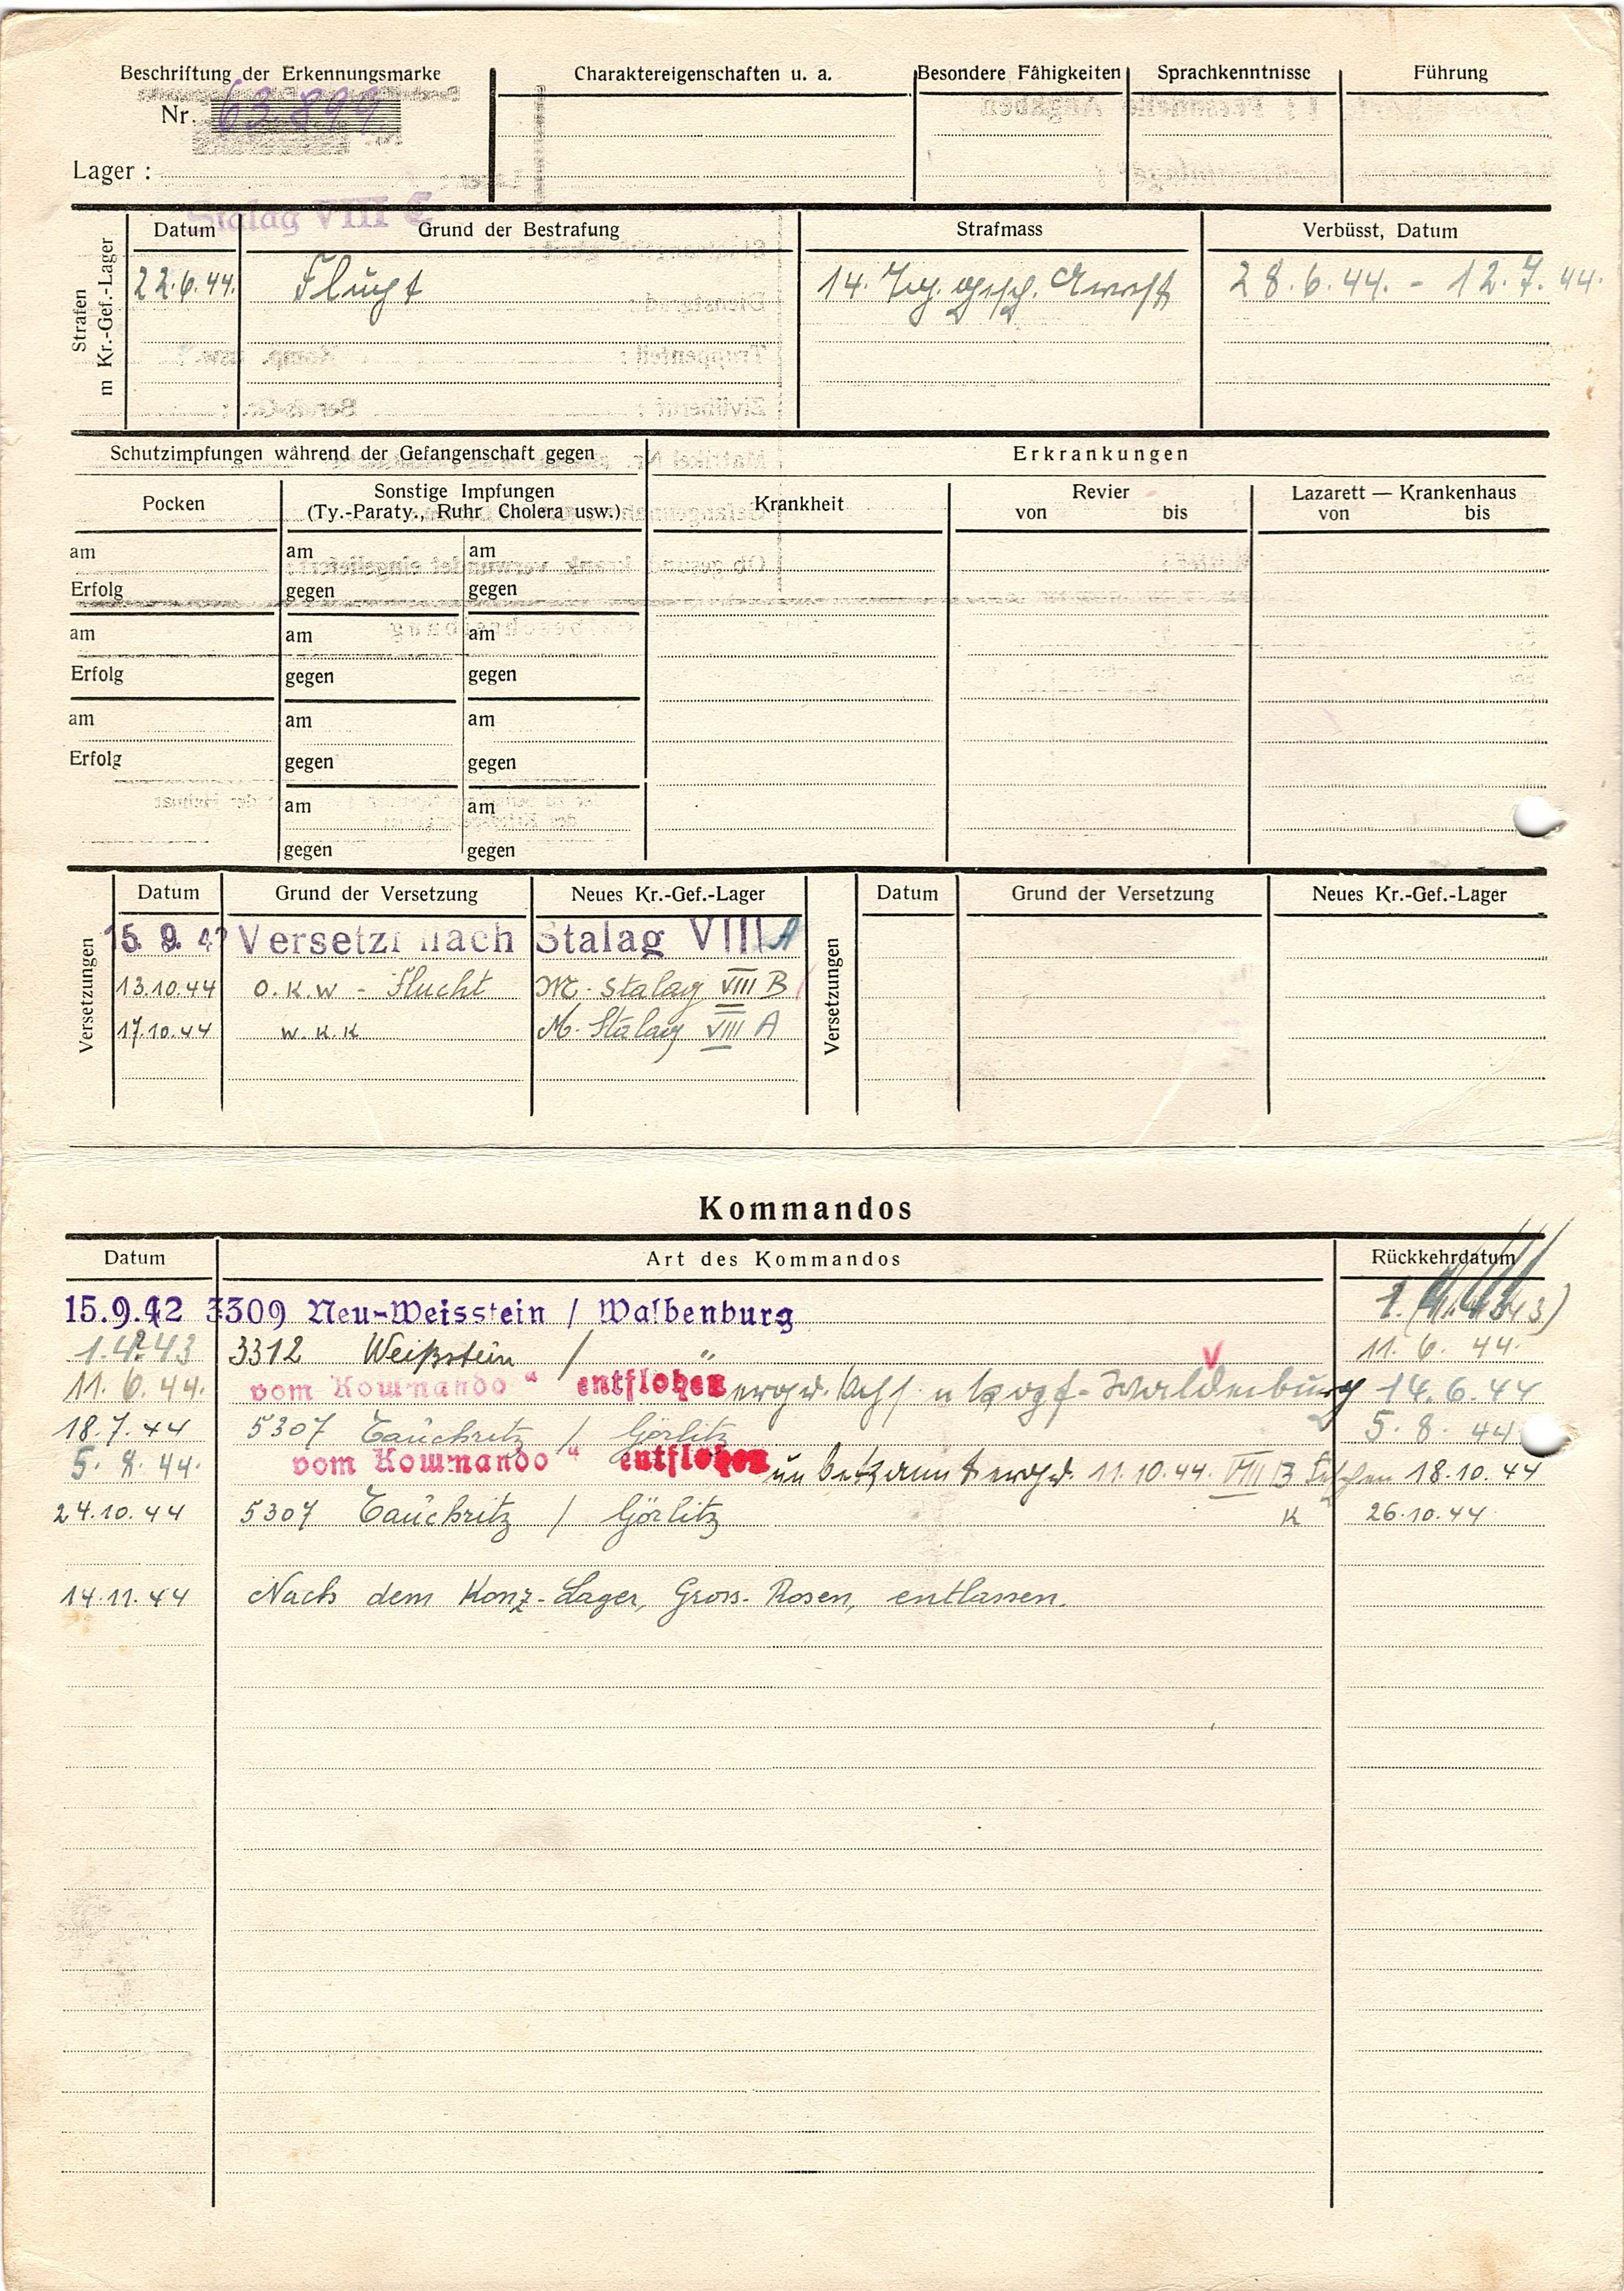 Beschriftung der Erkennungsmarke
Nr. 63 899
Lager :
Stalag VIII C
Charaktereigenschaften u. a.
Besondere Fähigkeiten
Sprachkenntnisse
Führung
Strafen
m Kr.-Gef.-Lager
Datum Grund der Bestrafung Strafmass Verbüsst, Datum
22.6.44. Flucht 14. Tg. gesch. Arrest 28.6.44. - 12.7.44.
Schutzimpfungen während der Gefangenschaft gegen
Erkrankungen
Pocken
Sonstige Impfungen
(Ty.-Paraty., Ruhr Cholera usw.)
Krankheit
Revier
von bis
Lazarett — Krankenhaus
von bis
am am am
Erfolg gegen gegen
am am am
Erfolg gegen gegen
am am am
Erfolg gegen gegen
am am
gegen gegen
Versetzungen
Datum Grund der Versetzung Neues Kr.-Gef.-Lager
15. 9. 42 Versetzt nach Stalag VIII A
13.10.44 O.K.W - Flucht M. Stalag VIII B
17.10.44 W.K.K M. Stalag VIII A
Versetzungen
Datum Grund der Versetzung Neues Kr.-Gef.-Lager
Kommandos
Datum Art des Kommandos Rückkehrdatum
15.9.42 3309 Neu-Weisstein / Walbenburg
1.4.43 3312 Weißstein / " 11. 6. 44.
11. 6. 44. vom Kommando " entflohen Waldenburg 14.6.44
18.7.44 5307 Tauchritz / Görlitz 5. 8. 44
5. 8. 44. vom Kommando " entflohen unbekannt ergr. 11.10.44. VIII B Teschen 18.10.44
24.10.44 5307 Tauchritz / Görlitz K 26.10.44
14.11.44 Nach dem Konz-Lager, Gross-Rosen, entlassen.